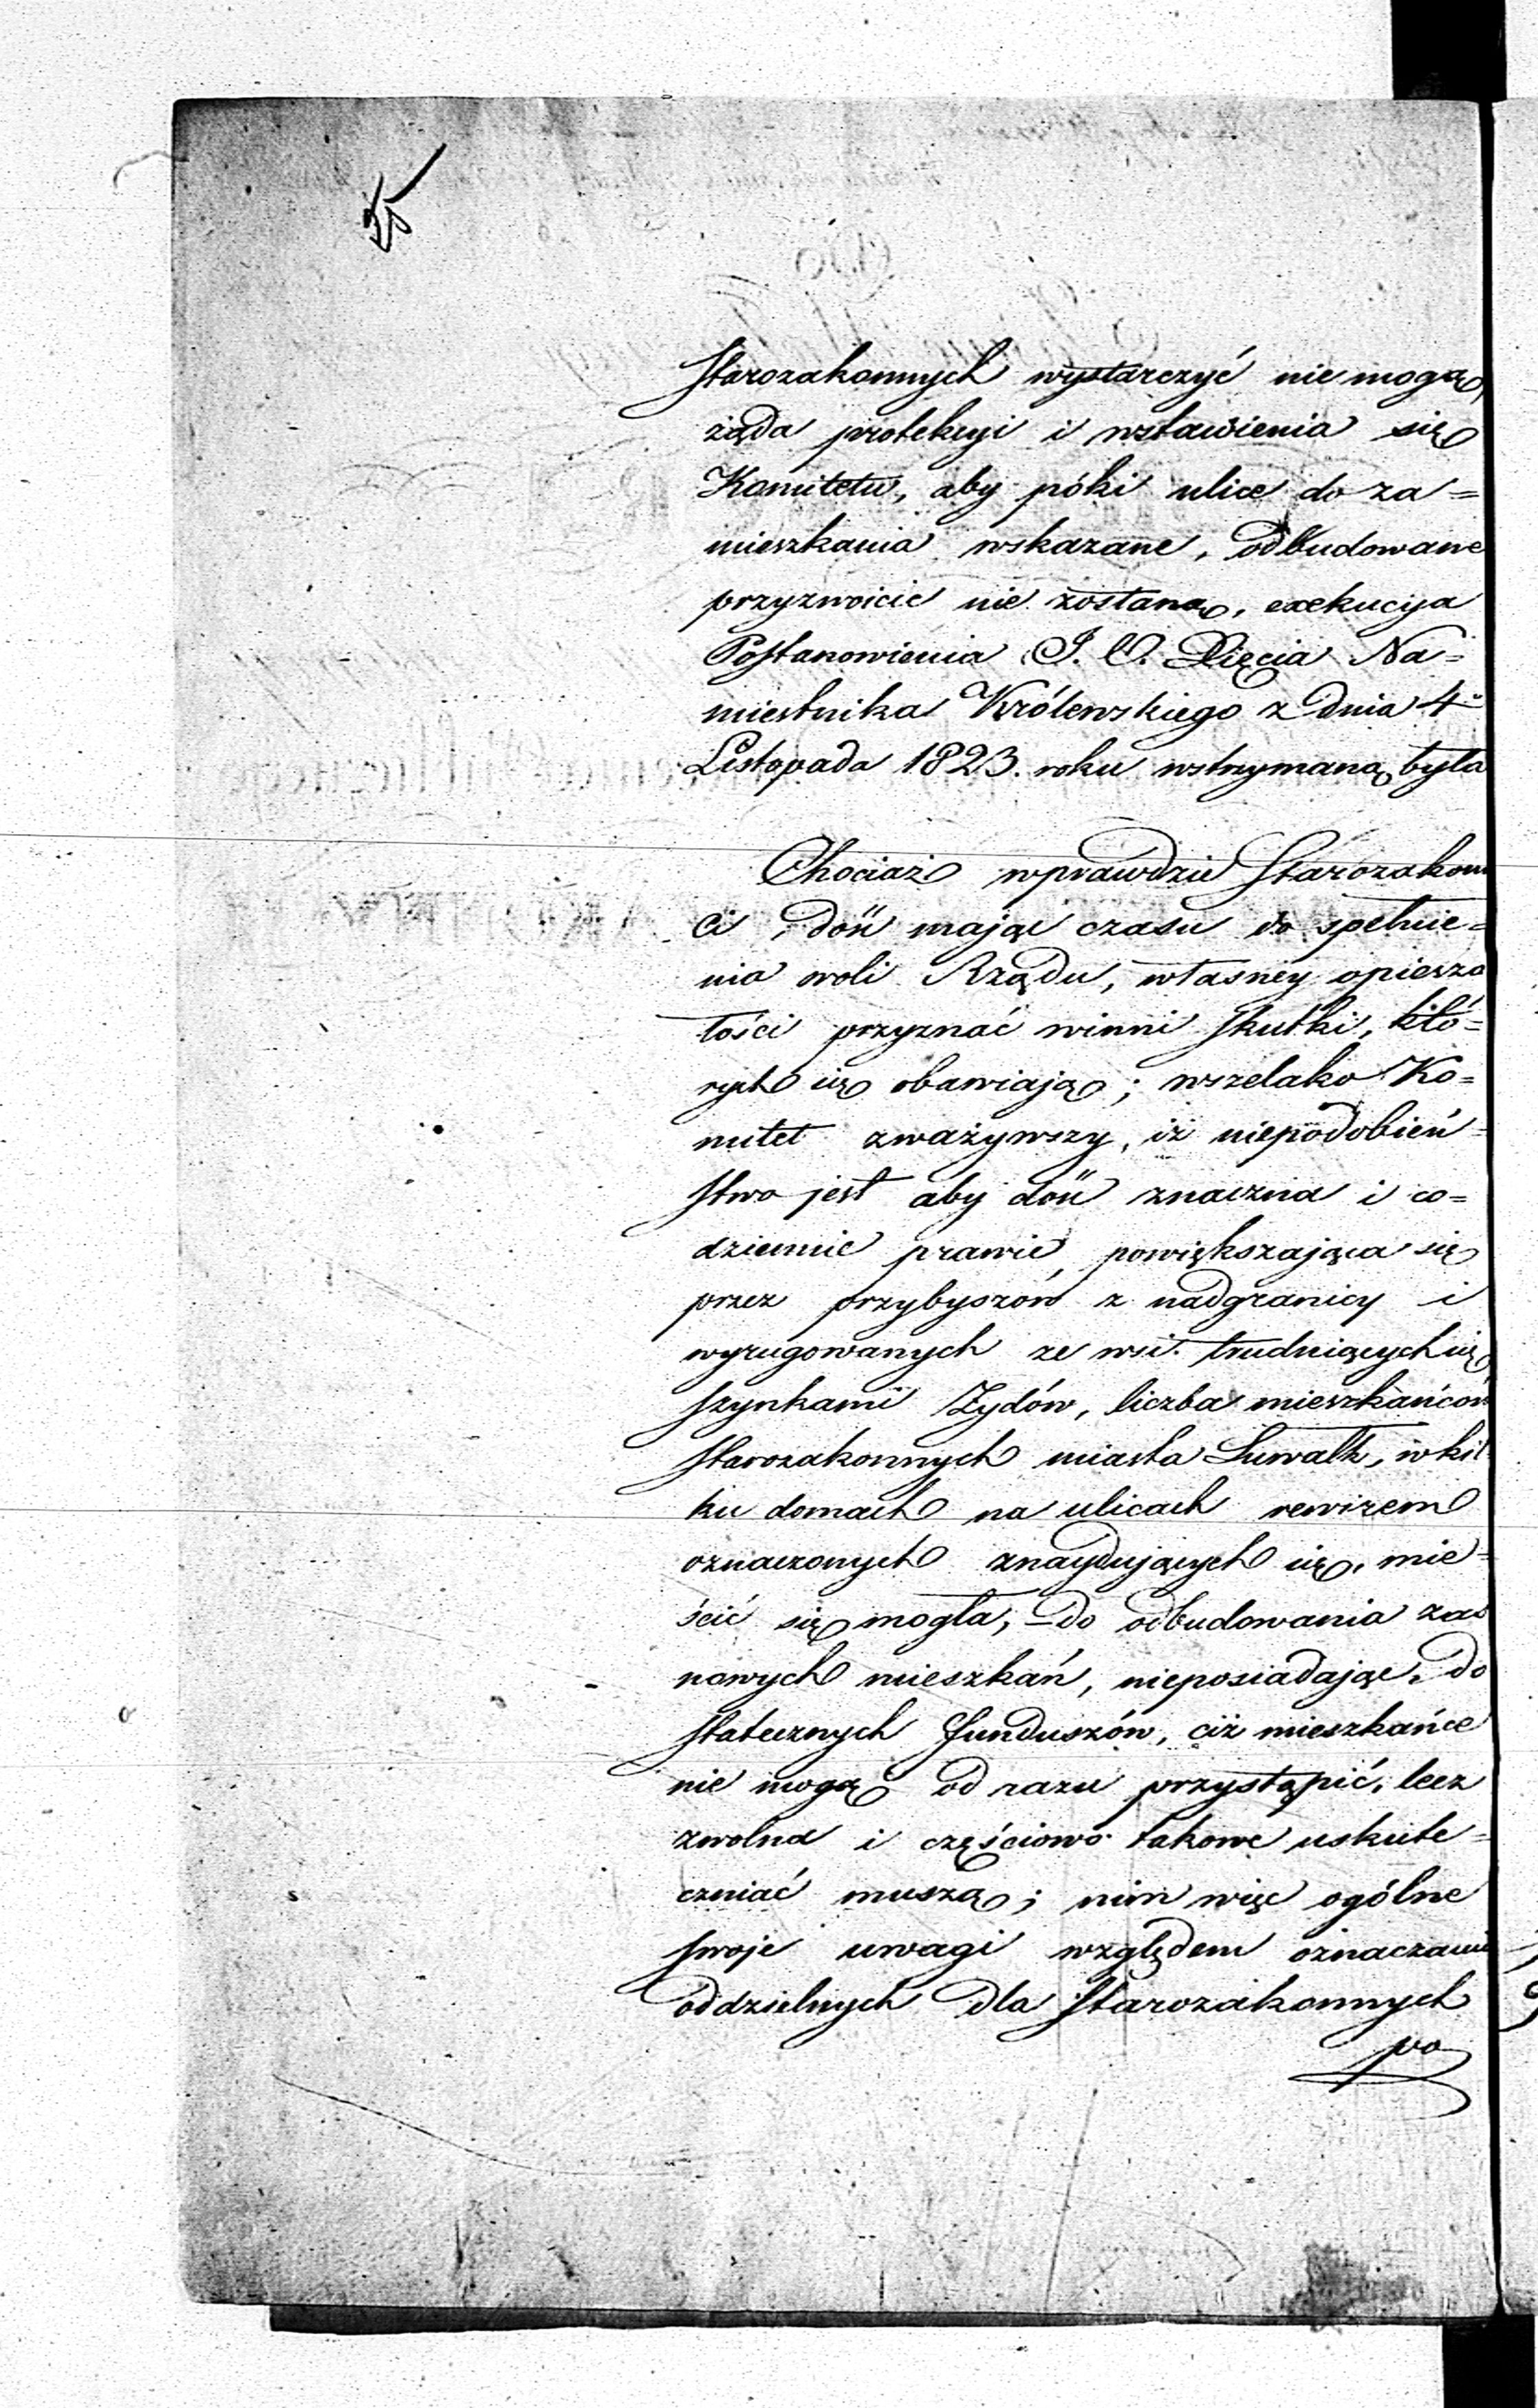 Starozakonnych wystarczyć nie mogą,
żąda protekcyi i wstawienia się
Komitetu, aby póki ulice do za=
mieszkania wskazane, odbudowane
przyzwoicie nie zostaną, exekucya
Postanowienia J. O. Xięcia Na=
miestnika Królewskiego z dnia 4
Listopada 1823. roku wstrzymaną była
Chociaż wprawdzie Starozakon
ci, dość mając czasu do spełnie=
nia woli Rządu, własney opiesza
łości przyznać winni skutki, któ=
rych się obawiają; wszelako Ko=
mitet zważywszy, iż niepodobień=
stwo jest aby dość znaczna i co=
dziennie prawie, powiększająca się
przez przybyszów z nadgranicy i
wyrugowanych ze wsi trudniących się
szynkami Żydów, liczba mieszkańców
starozakonnych miasta Suwałk, w kil
ku domach na ulicach rewirem
oznaczonych znaydujących się, mie=
ścić się mogła, – do odbudowania zaś
nowych mieszkań, nieposiadając do
statecznych funduszów, ciż mieszkańce
nie mogą od razu przystąpić, lecz
zwolna i częściowo takowe uskute=
czniać muszą; nim więc ogólne
swoje uwagi względem oznaczani
oddzielnych dla Starozakonnych
po